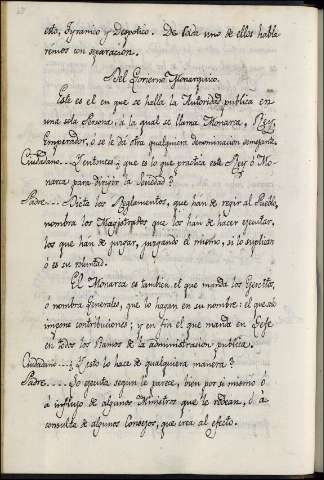 esto, Tyranico y Despotico. De cada uno de ellos habla
rémos con separacion.
Del Govierno Monarquico.
Este es el en que se halla la Autoridad publica en
una sola Persona, á la qual se llama Monarca, Rey,
Emperador, ó se le dá otra qualquiera denominacion semejante.
Ciudadano... Y entonces ¿ que es lo que practica este Rey ó Mo-
narca para dirigir la Sociedad?
Padre.... Dicta los Reglamentos, que han de regir al Pueblo,
nombra los Magistrados que los han de hacer ejecutar,
los que han de juzgar, juzgando el mismo, si lo suplican
ó es su voluntad.
El Monarca es tambien el que manda los Egercitos,
ó nombra Generales, que lo hagan en su nombre: el que
impone contribuciones; y en fin el que manda en Gefe
en todos los Ramos de la administracion publica.
Ciudadano... ¿Y esto lo hace de qualquiera manera?
Padre..... Lo egecuta segun le parece, bien por si mismo ó
á influjo de algunos Ministros que le rodean, ó á
consulta de algunos Consejos, que crea al efecto.